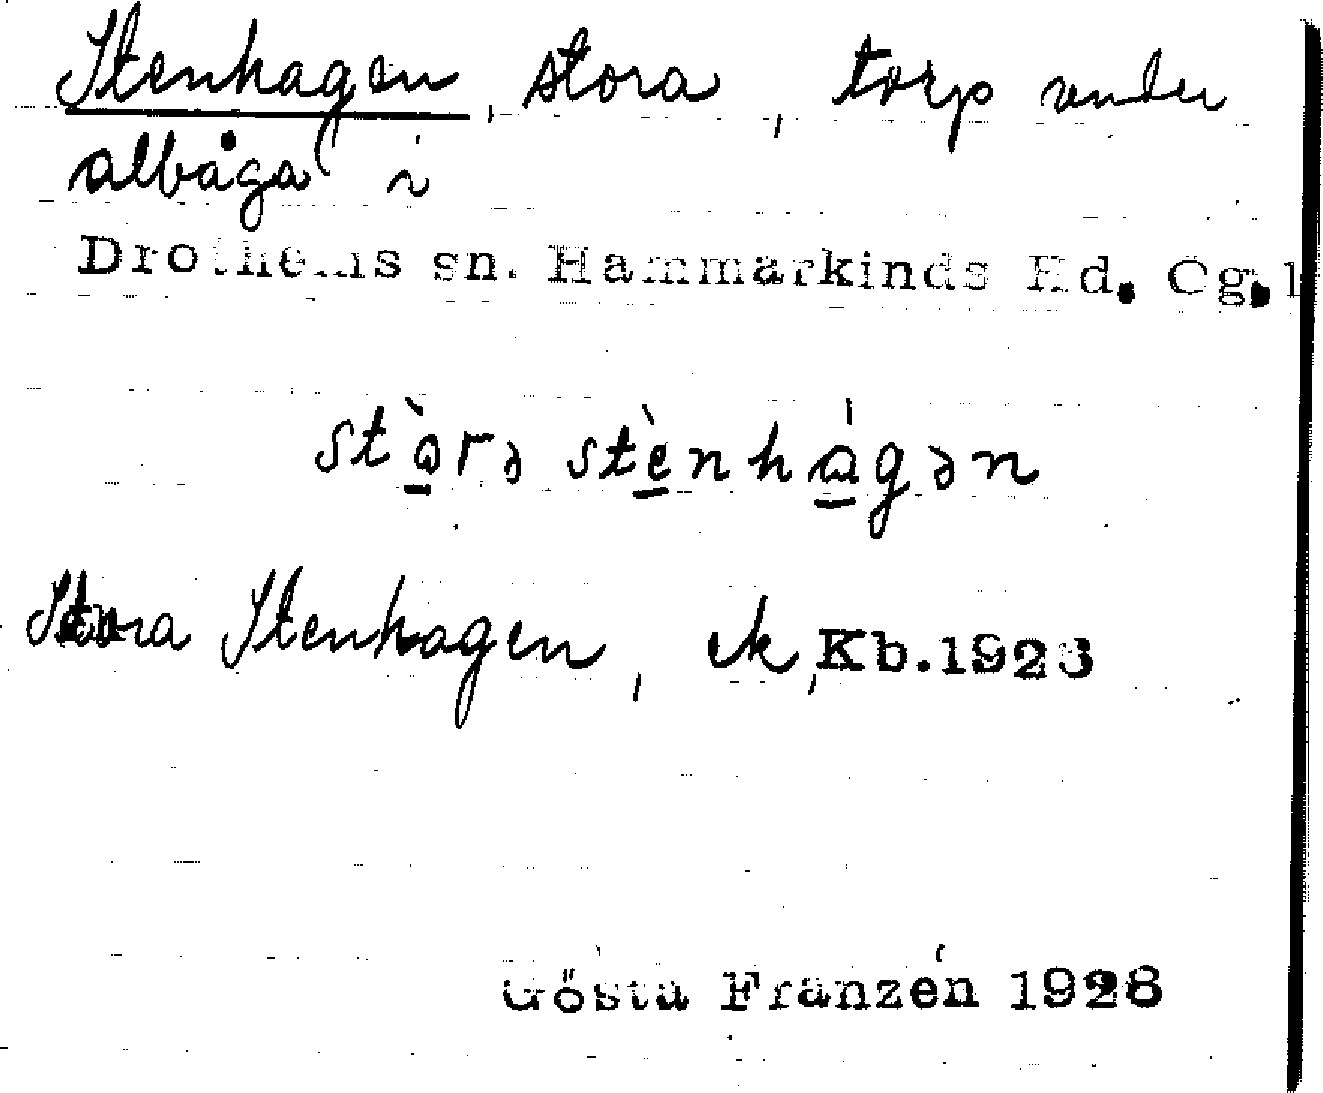 Stenhagen, stora, torp under
Albåga i
Drothems sn. Hammarkinds Hd. Ög.l
stò̱rə stè̱nhá̱gən
Stora Stenhagen, ek, Kb. 1926
Gösta Franzén 1928